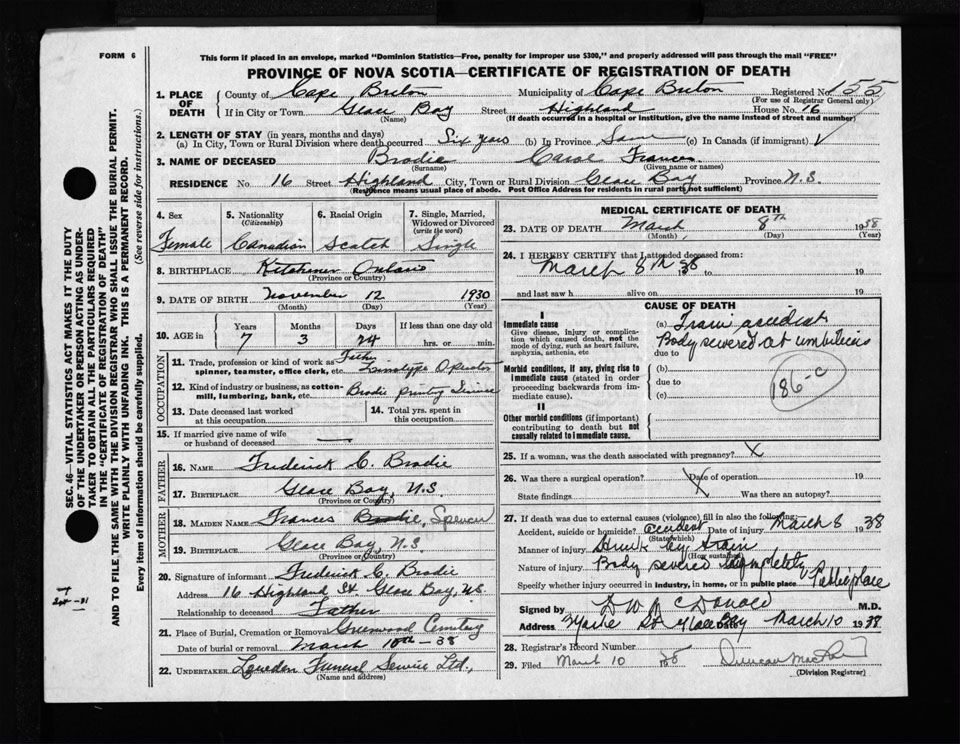 FORM 6
This form if placed in an envelope, marked "Dominion Statistics—Free, penalty for improper use $300," and properly addressed will pass through the mail "FREE"
PROVINCE OF NOVA SCOTIA—CERTIFICATE OF REGISTRATION OF DEATH
1. PLACE OF DEATH
County of Cape Breton Municipality of Cape Breton Registered No. 155
(For use of Registrar General only)
If in City or Town Glace Bay Street Highland House No. 16
(Name) (If death occurred in a hospital or institution, give the name instead of street and number)
2. LENGTH OF STAY (in years, months and days)
(a) In City, Town or Rural Division where death occurred Six years (b) In Province Same (c) In Canada (if immigrant) √
3. NAME OF DECEASED Brodie Carol Frances
(Surname) (Given name or names)
RESIDENCE No. 16 Street Highland City, Town or Rural Division Glace Bay Province N.S.
(Residence means usual place of abode. Post Office Address for residents in rural parts not sufficient)
SEC. 46—VITAL STATISTICS ACT MAKES IT THE DUTY
OF THE UNDERTAKER OR PERSON ACTING AS UNDER-
TAKER TO OBTAIN ALL THE PARTICULARS REQUIRED
IN THE "CERTIFICATE OF REGISTRATION OF DEATH"
AND TO FILE THE SAME WITH THE DIVISION REGISTRAR WHO SHALL ISSUE THE BURIAL PERMIT.
WRITE PLAINLY WITH UNFADING INK. THIS IS A PERMANENT RECORD.
Every item of information should be carefully supplied. (See reverse side for instructions.)
4. Sex
Female
5. Nationality
(Citizenship)
Canadian
6. Racial Origin
Scotch
7. Single, Married,
Widowed or Divorced
(write the word)
Single
8. BIRTHPLACE Kitchener Ontario
(Province or Country)
9. DATE OF BIRTH November 12 1930
(Month) (Day) (Year)
10. AGE in Years Months Days If less than one day old
7 3 24 hrs. or min.
OCCUPATION
11. Trade, profession or kind of work as Father
spinner, teamster, office clerk, etc. Linotype Operator
12. Kind of industry or business, as cotton-
mill, lumbering, bank, etc. Brodie printing Service
13. Date deceased last worked
at this occupation
14. Total yrs. spent in
this occupation
15. If married give name of wife
or husband of deceased —
FATHER
16. NAME Frederick C. Brodie
17. BIRTHPLACE Glace Bay, N.S.
(Province or Country)
MOTHER
18. MAIDEN NAME Frances Brodie, Spencer
19. BIRTHPLACE Glace Bay, N.S.
(Province or Country)
20. Signature of informant Frederick C. Brodie
Address 16 Highland St. Glace Bay, N.S.
Relationship to deceased Father
21. Place of Burial, Cremation or Removal Greenwood Cemetery
Date of burial or removal March 10th - 38
22. UNDERTAKER Funeral Service Ltd.,
(Name and address)
MEDICAL CERTIFICATE OF DEATH
23. DATE OF DEATH March 8th 1938
(Month) (Day) (Year)
24. I HEREBY CERTIFY that I attended deceased from:
March 8th 38 19 to 19
and last saw h alive on 19
CAUSE OF DEATH
I
Immediate cause
Give disease, injury or complication which caused death, not the mode of dying, such as heart failure, asphyxia, asthenia, etc
(a) Train accident
Body severed at umbilicus
due to
Morbid conditions, if any, giving rise to immediate cause (stated in order proceeding backwards from immediate cause).
(b)
due to
(c)
186-c
II
Other morbid conditions (if important) contributing to death but not causally related to immediate cause.
25. If a woman, was the death associated with pregnancy? X
26. Was there a surgical operation? X Date of operation 19
State findings Was there an autopsy?
27. If death was due to external causes (violence) fill in also the following:
Accident, suicide or homicide? accident Date of injury March 8 1938
(State which)
Manner of injury Struck by train
(How sustained)
Nature of injury Body severed completely
Specify whether injury occurred in industry, in home, or in public place Public place
Signed by D W McDonald M.D.
Address St Glace Bay Date March 10 1938
28. Registrar's Record Number
29. Filed March 10 38
(Division Registrar)